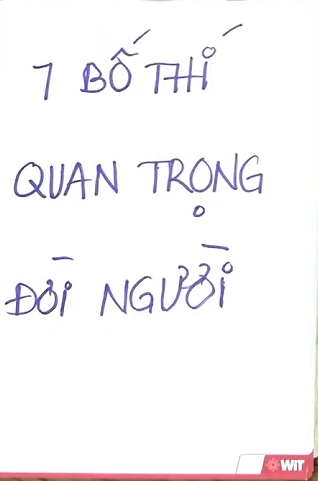 7 BỐ THÍ
QUAN TRỌNG
ĐỜI NGƯỜI
WIT